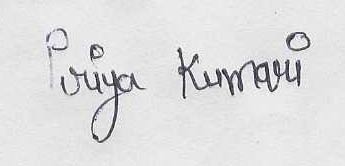 Priya Kumari